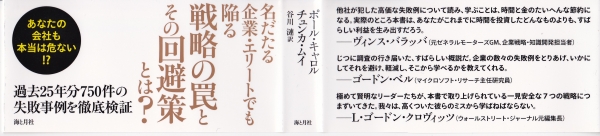 あなたの
会社も
本当は危ない
!?
名だたる
企業・エリートでも
陥る
戦略の罠と
その回避策
とは?
過去25年分750件の
失敗事例を徹底検証
海と月社
ポール・キャロル
チュンカ・ムイ
谷川 漣訳
海と月社
他社が犯した高価な失敗について読み、学ぶことは、時間と金のたいへんな節約に
なる。実際のところ本書は、あなたがこれまでに時間を投資したどんなものよりも、すば
らしい利益を生み出すだろう。
――ヴィンス・バラッバ(元ゼネラルモーターズGM、企業戦略・知識開発担当者)
じつに調査の行き届いた、すばらしい概説だ。企業の数々の失敗例をとりあげ、いかに
してそれを避け、軽減し、そこから学べるかを教えてくれる。
――ゴードン・ベル(マイクロソフト・リサーチ主任研究員)
極めて賢明なリーダーたちが、本書で取り上げられている一見安全な7つの戦略につ
まずいてきた。我々は、高くついた彼らのミスから学ばねばならない。
――L・ゴードン・クロヴィッツ(ウォールストリート・ジャーナル元編集長)